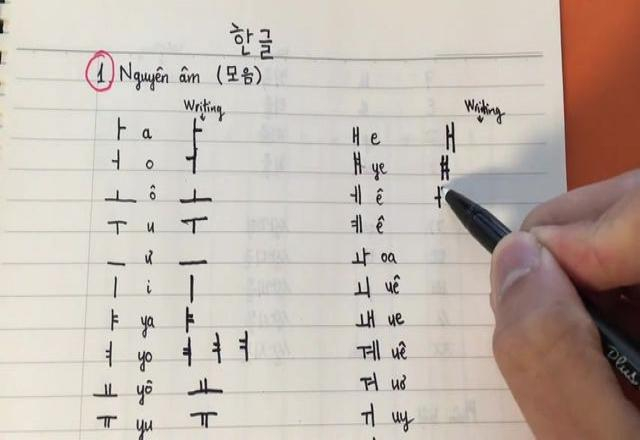 한글
1 Nguyên âm (모음)
Writing
ㅏ a ㅏ
ㅓ o ㅓ
ㅗ ô ㅗ
ㅜ u ㅜ
ㅡ ư ㅡ
ㅣ i ㅣ
ㅑ ya ㅑ
ㅕ yo ㅕ ㅕ ㅕ
ㅛ yô ㅛ
ㅠ yu ㅠ
Writing
ㅐ e ㅐ
ㅒ ye ㅒ
ㅔ ê ㅓ
ㅖ ê
ㅘ oa
ㅚ uê
ㅙ ue
ㅞ uê
ㅝ uơ
ㅟ uy
Plus